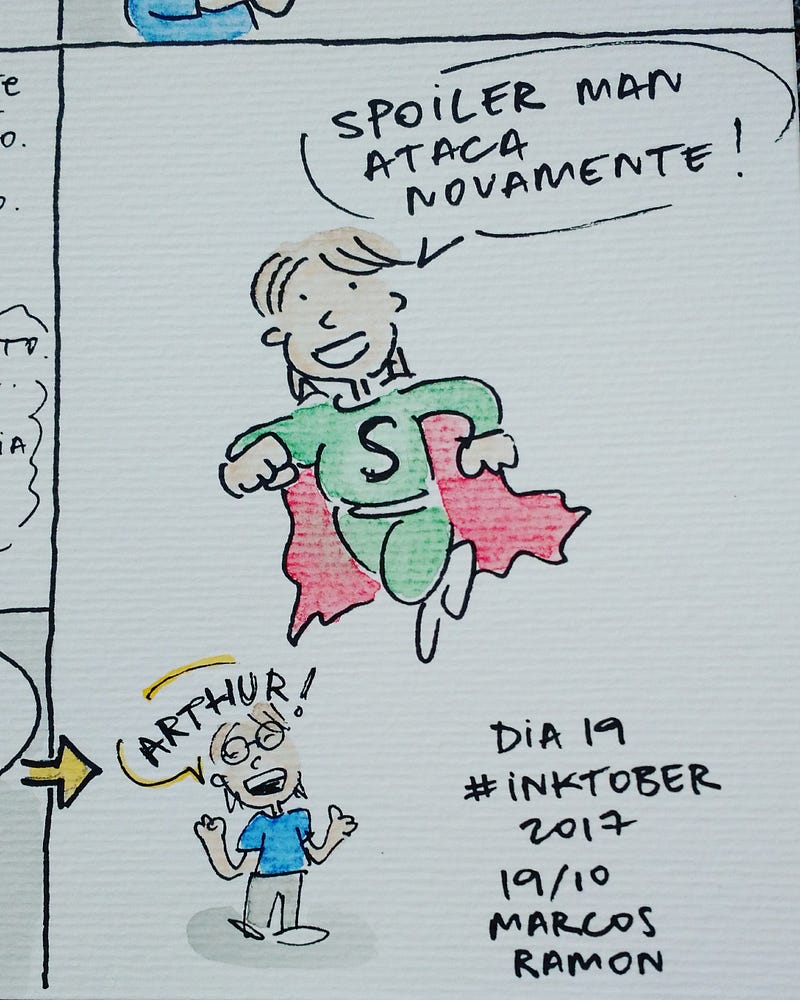 SPOILER MAN
ATACA
NOVAMENTE!
S
ARTHUR!
DIA 19
#INKTOBER
2017
19/10
MARCOS
RAMON